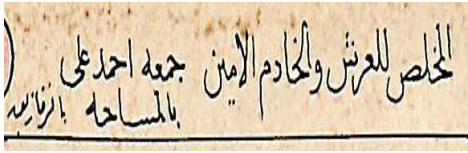 المخلص للعرش والخادم الامين جمعه احمد على
بالمساحه بالزقازيق